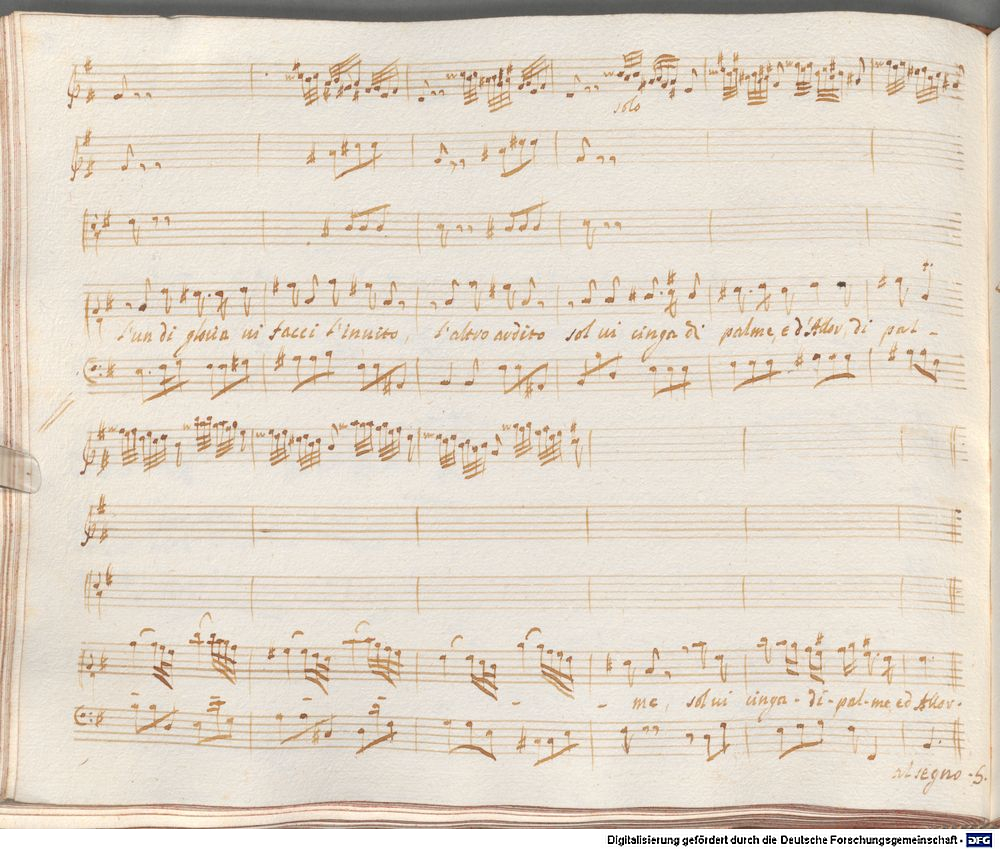 solo
l'un di gloria vi facci l'inuito, l'altro ardito sol vi cinga di palme, e d'Allor, di pal-
- - me, sol vi cinga - di - pal-me ed Allor.
al segno .S.
Digitalisierung gefördert durch die Deutsche Forschungsgemeinschaft - DFG